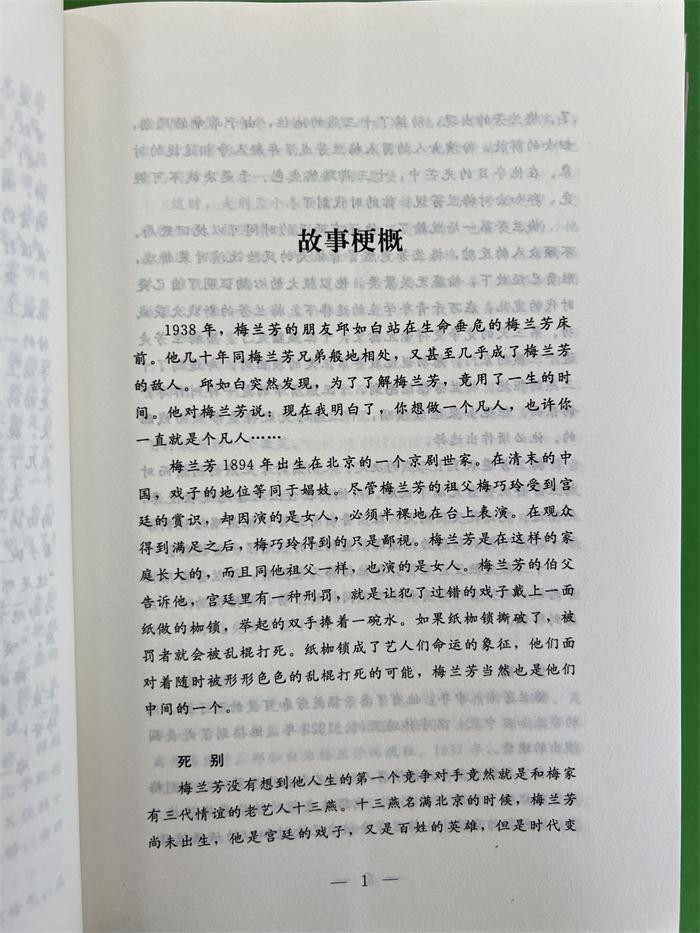 故事梗概
1938年，梅兰芳的朋友邱如白站在生命垂危的梅兰芳床
前。他几十年同梅兰芳兄弟般地相处，又甚至几乎成了梅兰芳
的敌人。邱如白突然发现，为了了解梅兰芳，竟用了一生的时
间。他对梅兰芳说：现在我明白了，你想做一个凡人，也许你
一直就是个凡人……
梅兰芳1894年出生在北京的一个京剧世家。在清末的中
国，戏子的地位等同于娼妓。尽管梅兰芳的祖父梅巧玲受到宫
廷的赏识，却因演的是女人，必须半裸地在台上表演。在观众
得到满足之后，梅巧玲得到的只是鄙视。梅兰芳是在这样的家
庭长大的，而且同他祖父一样，也演的是女人。梅兰芳的伯父
告诉他，宫廷里有一种刑罚，就是让犯了过错的戏子戴上一面
纸做的枷锁，举起的双手捧着一碗水。如果纸枷锁撕破了，被
罚者就会被乱棍打死。纸枷锁成了艺人们命运的象征，他们面
对着随时被形形色色的乱棍打死的可能，梅兰芳当然也是他们
中间的一个。
死别
梅兰芳没有想到他人生的第一个竞争对手竟然就是和梅家
有三代情谊的老艺人十三燕。十三燕名满北京的时候，梅兰芳
尚未出生，他是宫廷的戏子，又是百姓的英雄，但是时代变
— 1 —